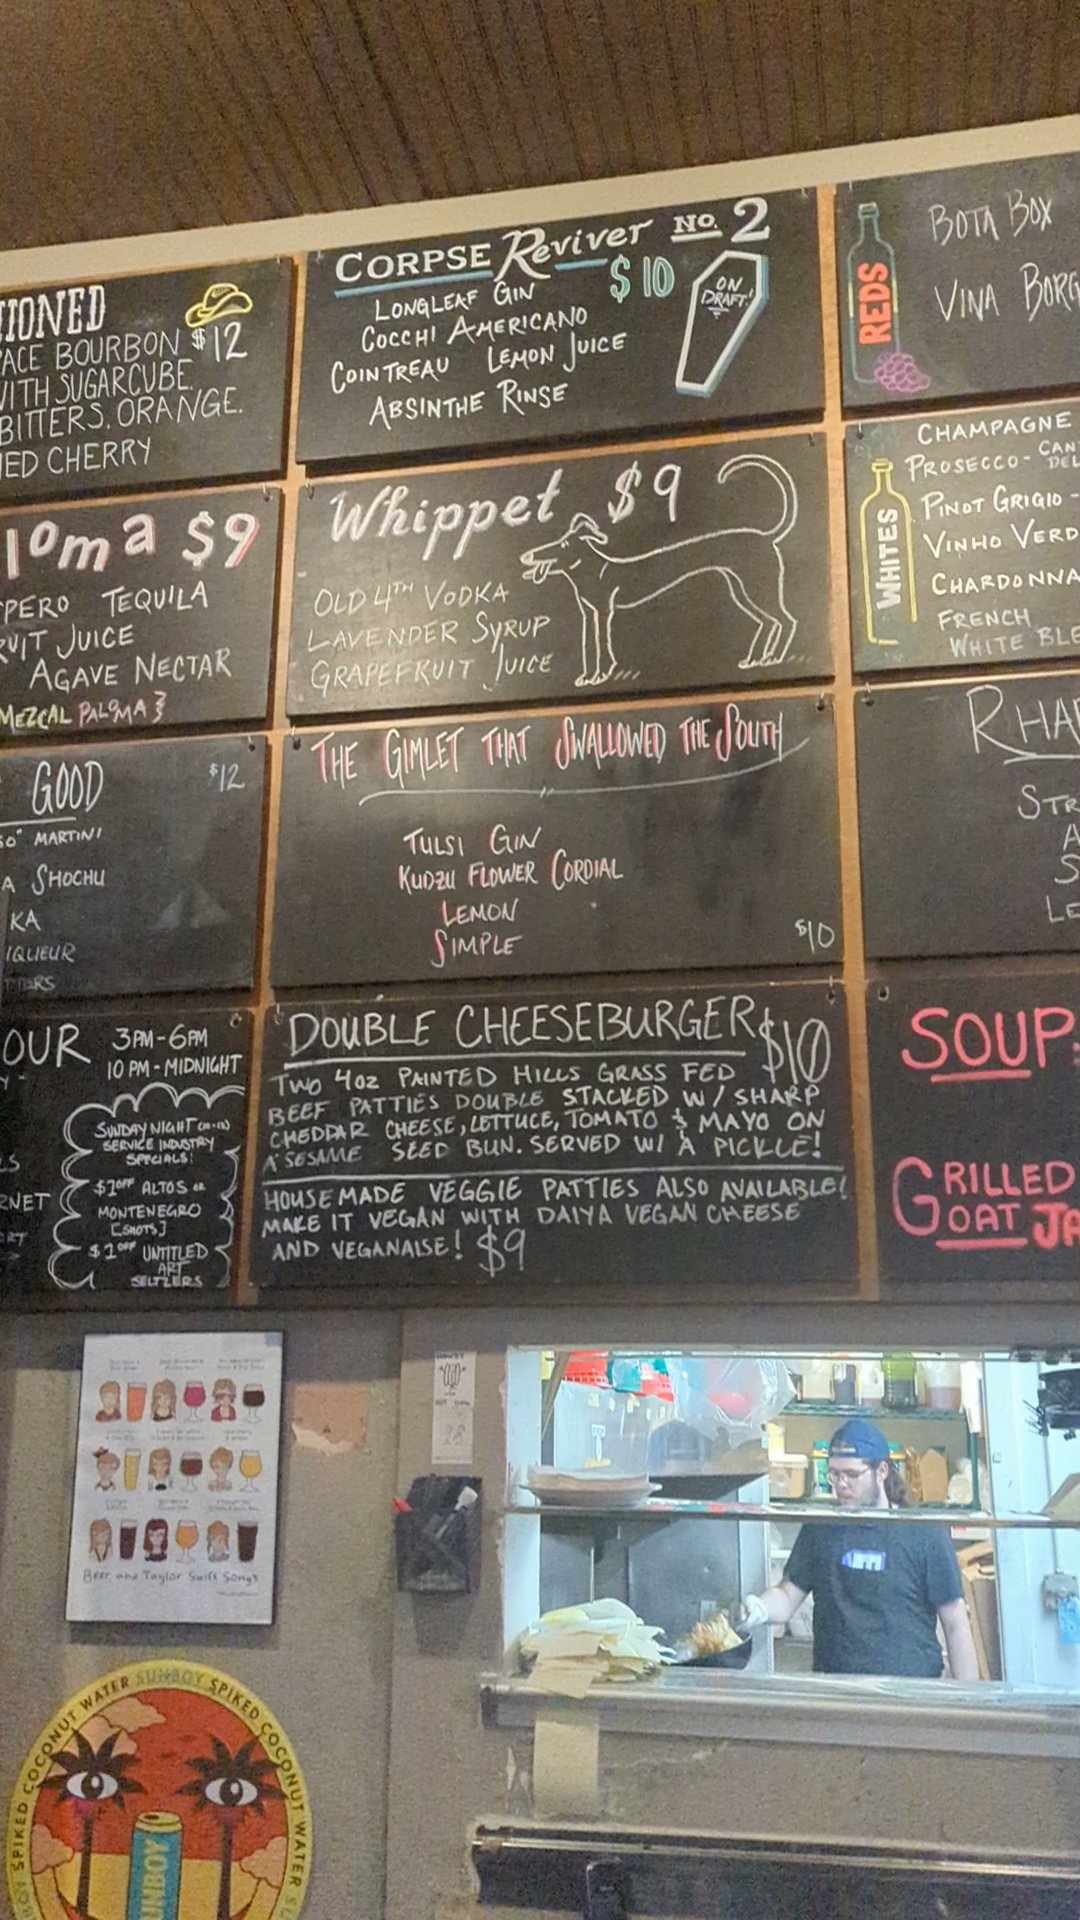 IONED
ACE BOURBON $12
WITH SUGARCUBE.
BITTERS. ORANGE.
ED CHERRY
CORPSE Reviver No. 2
$10
LONGLEAF GIN
COCCHI AMERICANO
COINTREAU LEMON JUICE
ABSINTHE RINSE
ON
DRAFT!
REDS
BOTA BOX
VINA BORG
loma $9
PERO TEQUILA
RUIT JUICE
AGAVE NECTAR
MEZCAL PALOMA}
Whippet $9
OLD 4TH VODKA
LAVENDER SYRUP
GRAPEFRUIT JUICE
WHITES
CHAMPAGNE
PROSECCO - CAN
DEL
PINOT GRIGIO -
VINHO VERD
CHARDONNA
FRENCH
WHITE BLE
GOOD $12
SO" MARTINI
A SHOCHU
KA
IQUEUR
TTERS
THE GIMLET THAT SWALLOWED THE SOUTH
TULSI GIN
KUDZU FLOWER CORDIAL
LEMON
SIMPLE
$10
RHA
STR
A
S
LE
OUR 3PM-6PM
10 PM-MIDNIGHT
LS
RNET
ORT
SUNDAY NIGHT (10-12)
SERVICE INDUSTRY
SPECIALS:
$1 OFF ALTOS OR
MONTENEGRO
[SHOTS]
$1 OFF UNTITLED
ART
SELTZERS
DOUBLE CHEESEBURGER $10
TWO 4OZ PAINTED HILLS GRASS FED
BEEF PATTIES DOUBLE STACKED W/ SHARP
CHEDDAR CHEESE, LETTUCE, TOMATO & MAYO ON
A SESAME SEED BUN. SERVED W/ A PICKLE!
HOUSEMADE VEGGIE PATTIES ALSO AVAILABLE!
MAKE IT VEGAN WITH DAIYA VEGAN CHEESE
AND VEGANAISE! $9
SOUP:
GRILLED
GOAT JA
Beer and Taylor Swift Songs
SPIKED COCONUT WATER SUNBOY SPIKED COCONUT WATER SU
UNBOY